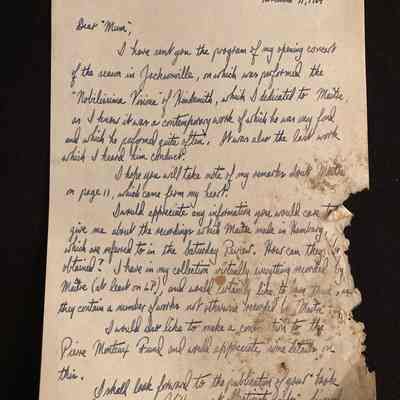 Dear "Mum",
I have sent you the program of my opening concert
of the season in Jacksonville, on which was performed the
"Nobilissima Visione" of Hindemith, which I dedicated to Maitre,
as I know it was a contemporary work of which he was very fond
and which he performed quite often. It was also the last work
which I heard him conduct.
I hope you will take note of my remarks about Maitre
on page 11, which came from my heart.
I would appreciate any information you would care to
give me about the recordings which Maitre made in Hamburg
which are referred to in the Saturday Review. How can they be
obtained? I have in my collection virtually everything recorded by
Maitre (at least on LP), and would certainly like to own
they contain a number of works not otherwise recorded by Maitre
I would also like to make a to the
Pierre Monteux Fund and would appreciate some details on
this.
I shall look forward to the publication of your book